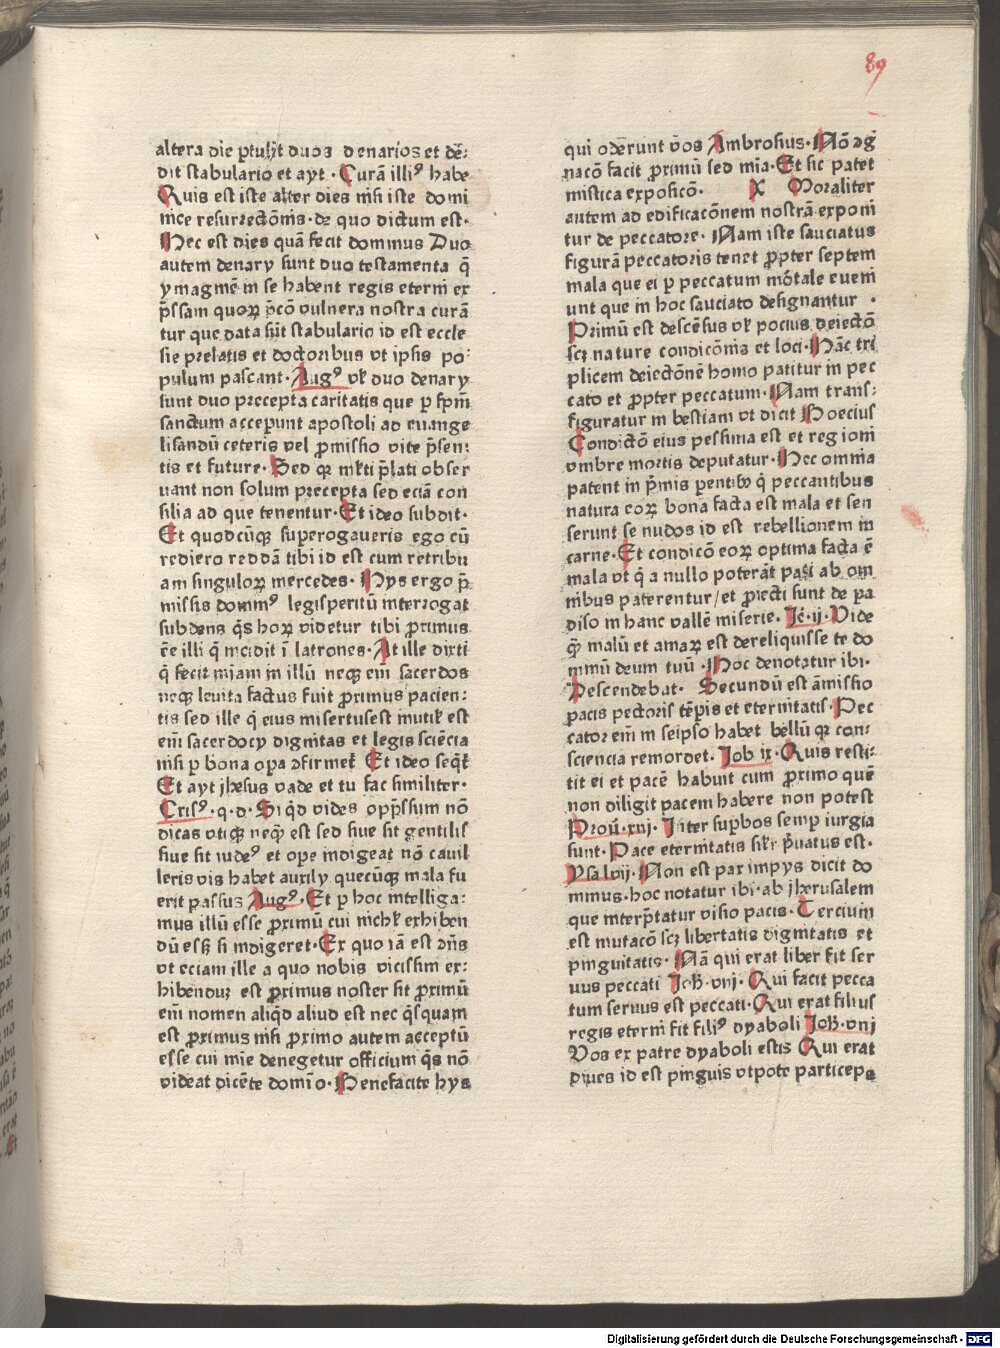 89
altera die ꝓtulit duos denarios et de-
dit stabulario et ayt · Curā illiꝰ habe
Quis est iste alter dies nisi iste domi
nice resurrectōnis · de quo dictum est ·
Hec est dies quā fecit dominus Duo
autem denary sunt duo testamenta q̄
ymaginē in se habent regis eterni ex
p̄ssam quoꝝ p̄cō vulnera nostra curā
tur que data sūt stabulario id est eccle
sie prelatis et doctoribus vt ipsis po-
pulum pascant · Augꝰ vl̓ duo denary
sunt duo precepta caritatis que ꝑ spm̄
sanctum acceperunt apostoli ad euange
lisandū ceteris vel ꝓmissio vite p̄sen-
tis et future · Sed qꝛ ml̓ti p̄lati obser
uant non solum precepta sed eciā con
silia ad que tenentur · Et ideo subdit ·
Et quodcūqꝫ superogaueris ego cū
rediero reddā tibi id est cum retribu
am singuloꝝ mercedes · Hys ergo p̄
missis dominꝰ legisperitū interrogat
subdens q̄s hoꝝ videtur tibi ꝓximus
ēe illi q̄ incidit ī latrones · At ille dixit
q̄ fecit mīam in illū neqꝫ eni sacerdos
neqꝫ leuita factus fuit ꝓximus pacien-
tis sed ille q̄ eius misertus est inutil̓ est
eni sacerdocy dignitas et legis sciēcia
nisi ꝑ bona opa ꝯfirmet̄ Et ideo seqt̄
Et ayt jhesus vade et tu fac similiter ·
Crisꝰ · q · d · Si qd̄ vides opp̄ssum nō
dicas vtiqꝫ neqꝫ est sed siue sit gentilis
siue sit iudeꝰ et ope indigeat nō cauil
leris vis habet auxily quecūqꝫ mala fu
erit passus Augꝰ · Et ꝑ hoc intelliga-
mus illū esse ꝓximū cui nichil̓ exhiben
dū essꝫ si indigeret · Ex quo iā est dn̄s
vt eciam ille a quo nobis vicissim ex-
hibenduꝫ est ꝓximus noster sit ꝓximū
eni nomen aliqd̄ aliud est nec q̄squam
est ꝓximus nisi ꝓximo autem acceptū
esse cui mīe denegetur officium q̄s nō
videat dicēte domīo · Benefacite hys
qui oderunt vōs Ambrosius · Nō ꝯg
nacō facit ꝓximū sed mīa · Et sic patet
mistica exposicō · X Moraliter
autem ad edificatōnem nostrā exponi
tur de peccatore · Nam iste sauciatus
figurā peccatoris tenet ꝓpter septem
mala que ei ꝑ peccatum mōtale eueni
unt que in hoc sauciato designantur ·
Primū est descēsus vl̓ pocius deiectō
scꝫ nature condicōnis et loci · Hāc tri
plicem deiectōnē homo patitur in pec
cato et ꝓpter peccatum · Nam trans-
figuratur in bestiam vt dicit Boecius
Condictō eius pessima est et regioni
vmbre mortis deputatur · Hec omnia
patent in p̄mis pentibꝫ q̄ peccantibus
natura eoꝝ bona facta est mala et sen
serunt se nudos id est rebellionem in
carne · Et condicō eoꝝ optima facta ē
mala vt q̄ a nullo poterāt pati ab om
nibus paterentur / et ꝓiecti sunt de pa
diso in hanc vallē miserie. Je · ij · Vide
qm̄ malū et amaꝝ est dereliquisse te do
minū deum tuū · Hoc denotatur ibi ·
Descendebat · Secundū est āmissio
pacis pectoris tēpis et eternitatis · Pec
cator eni in seipso habet bellū qꝛ con-
sciencia remordet. Job ix · Quis resti-
tit ei et pacē habuit cum ꝓximo quē
non diligit pacem habere non potest
Prou · xiij · Inter supbos semp iurgia
sunt · Pace eternitatis sil̓r p̄uatus est ·
Psa lvij · Non est pax impys dicit do
minus · hoc notatur ibi · ab jherusalem
que interp̄tatur visio pacis · Tercium
est mutacō scꝫ libertatis dignitatis et
pinguitatis · Nā qui erat liber fit ser
uus peccati Joh̄ · viij · Qui facit pecca
tum seruus est peccati · Qui erat filius
regis eterni fit filiꝰ dyaboli Joh̄ · viij
Vos ex patre dyaboli estis Qui erat
diues id est pinguis vtpote particeps
Digitalisierung gefördert durch die Deutsche Forschungsgemeinschaft - DFG